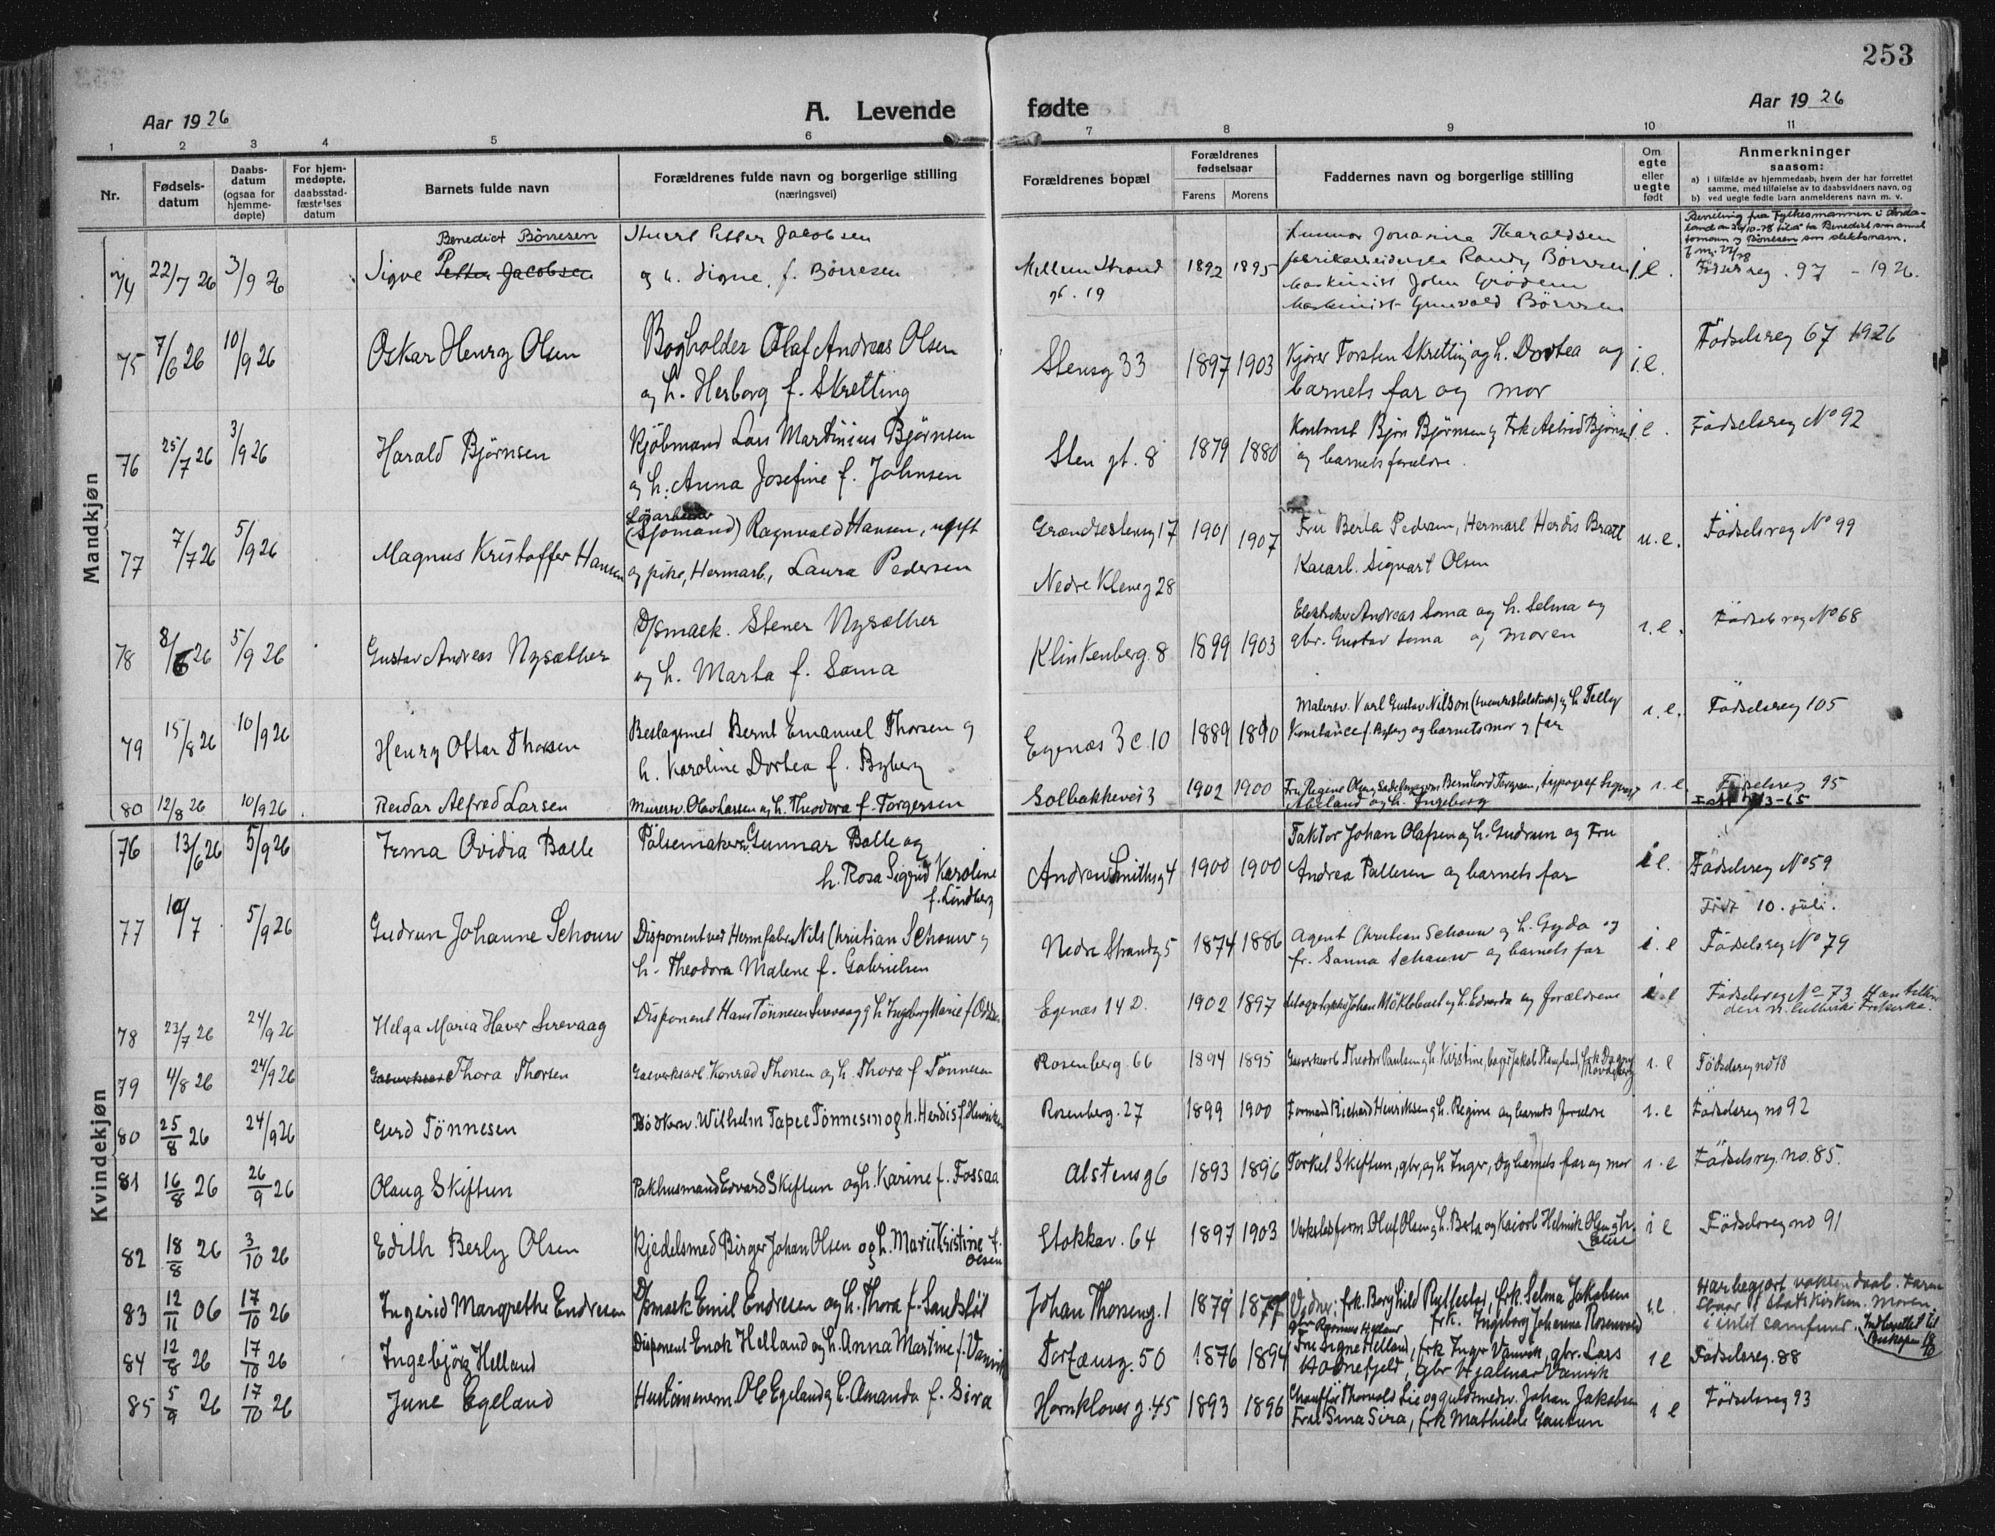 253
Aar 1926
A. Levende fødte
Aar 1926
1 2 3 4 5 6 7 8 9 10 11
Nr.
Fødsels-
datum
Daabs-
datum
(ogsaa for
hjemme-
døpte)
For hjem-
medøpte,
daabsstad-
fæstelses
datum
Barnets fulde navn
Forældrenes fulde navn og borgerlige stilling
(næringsvei)
Forældrenes bopæl
Forældrenes
fødselsaar
Farens Morens
Faddernes navn og borgerlige stilling
Om
egte
eller
uegte
født
Anmerkninger
saasom:
a) i tilfælde av hjemmedaab, hvem der har forrettet
samme, med tilføielse av to daabsvidners navn, og
b) ved uegte fødte barn anmelderens navn m. v.
Mandkjøn
Benedict Børresen
74 22/7 26 3/9 26 Sigve Petter Jacobsen
Petter Jacobsen
og h. Signe, f. Børresen
Mellem Strand
gt. 19
1892 1895
Haraldsen
Randy Børresen
Maskinist John Grødem
Maskinist Gunvald Børresen
i.e.
Fødselsreg. 97 - 1926.
75 7/6 26 10/9 26 Oskar Henry Olsen
Bogholder Olaf Andreas Olsen
og h. Herborg f. Skretting
Stensg 33 1897 1903
Kjører Torsten Skretting og h. Dortea og
barnets far og mor
i.e.
Fødselsreg 67 1926
76 25/7 26 3/9 26 Harald Bjørnsen
Kjøbmand Lars Martinius Bjørnsen
og h. Anna Josefine f. Johnsen
Sten gt. 8 1879 1880
Kontorist Bjørn Bjørnsen og Frk Astrid Bjørnsen
og barnets forældre.
i.e.
Fødselsreg No 92
77 7/7 26 5/9 26 Magnus Kristoffer Hansen
Løsarbeider
(Sjømand) Ragnvald Hansen, ugift
og pike, Hermarb., Laura Pedersen
17
Nedre Kleivg 28
1901 1907
Fru Berta Pedersen, Hermarb Herdis Bratt
Kaiarb. Sigvart Olsen
u.e.
Fødselsreg No 99
78 8/6 26 5/9 26 Gustav Andreas Nysæther
D/smask. Stener Nysæther
og h. Marta f. Soma
Klinkenberg. 8 1899 1903
Andreas Soma og h. Selma og
gbr. Gustav Soma og moren
i.e.
Fødselsreg No 68
79 15/8 26 10/9 26 Henry Ottar Thorsen
Beslagsmed Bernt Emanuel Thorsen og
h. Karoline Dortea f. Byberg
Egenæs 3c. 10 1889 1890
Malersv. Karl Gustav Nilson og h
Konstance f. Byberg og barnets mor og far
i.e.
Fødselsreg 105
80 12/8 26 10/9 26 Reidar Alfred Larsen
Murersv. Olav Larsen og h. Theodora f. Torgersen
Solbakkevei 3 1902 1900
Fru Regine Olsen, Bernhard Torgersen, typograf
Abeland og h. Ingeborg
i.e.
Fødselsreg 95
Kvindekjøn
76 13/6 26 5/9 26 Irma Ovidia Balle
Pølsemaker Gunnar Balle og
h. Rosa Sigrid Karoline
f. Lindberg
Andrew Smithsg 4 1900 1900
Faktor Johan Olafsen og h. Gudrun og Fru
Andrea Pallesen og barnets far
i e.
Fødselsreg No 59
77 10/7 5/9 26 Gudrun Johanne Schouw
Disponent ved Hermfabr. Nils Christian Schouw og
h. Theodora Malene f. Gabrielsen
Nedre Strandg 5 1874 1886
Agent Christian Schouw og h. Gyda og
fr. Sanna Schouw og barnets far
i. e
Født 10. juli.
Fødselsreg No 79
78 23/7 26 24/9 26 Helga Maria Haver Sirevaag
Disponent Hans Tønnesen Sirevaag og h Ingeborg Marie f
Egenæs 14 D. 1902 1897
Johan Møklebust og h. Edvarda og Forældrene
i. e
Fødselsreg No 73
den ev. lutherske Frikirke.
79 4/8 26 24/9 26 Thora Thorsen
Gasverksarb. Konrad Thorsen og h. Thora f Tønnesen
Rosenberg. 66 1894 1895
Gasverksarb Theodor Paulsen og h. Kirstine, bager Jakob
i. e
Fødselsreg no 18
80 25/8 26 24/9 26 Gerd Tønnesen
Bødkersv. Wilhelm Tønnesen og h. Herdis f. Henriksen
Rosenberg. 27 1899 1900
Formand Richard Henriksen og h. Regine og barnets forældre
i. e
Fødselsreg no 92
81 16/8 26 26/9 26 Olaug Skiftun
Pakhusmand Edvard Skiftun og h. Karine f. Fossaa
Alstensg 6 1893 1896
Torkel Skiftun, gbr, og h Inger, og barnets far og mor
i. e
Fødselsreg. no. 85.
82 18/8 26 3/10 26 Edith Berly Olsen
Kjedelsmed Birger Johan Olsen og h. Marie Kristine f.
Olsen
Stokkav. 64 1897 1903
Verkstedform. Oluf Olsen og h. Berta og Kaiarb Helmik Olsen og h.
i e
Fødselsreg no 91
83 12/11 06 17/10 26 Ingerid Margrethe Endresen
D/smask Emil Endresen og h. Thora f. Sandsløt
Johan Thorseng. 1 1879 1877
Vidner: frk. Borghild Rytfestøl, frk. Selma Jakobsen
frk. Ingeborg Johanne Rosenvold
i.e
Har begjært voksendaab. Faren
staar i Statskirken. Moren
i intet samfund. Indberettet til
Biskopen
84 12/8 26 17/10 26 Ingebjørg Helland
Disponent Enok Helland og h. Anna Martine f. Vanvik
Torfæusg. 50 1876 1894
gbr Rasmus Helland
Fru Signe Helland, frk Inger Vanvik, gbr. Lars
gbr Hjalmar Vanvik
i e
Fødselsreg. 88
85 5/9 26 17/10 26 June Egeland
Hustømmerm. Ole Egeland og h. Amanda f. Sira
Hornklovesg. 45 1893 1896
Chauffør Thorvald Lie og guldsmedsv. Johan Jakobsen
Fru Sina Sira, frk Mathilde Gautun
i e
Fødselsreg 93